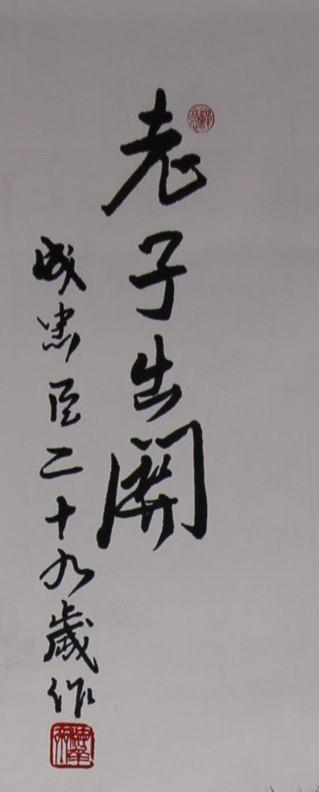 老子出關
成忠臣二十九歲作